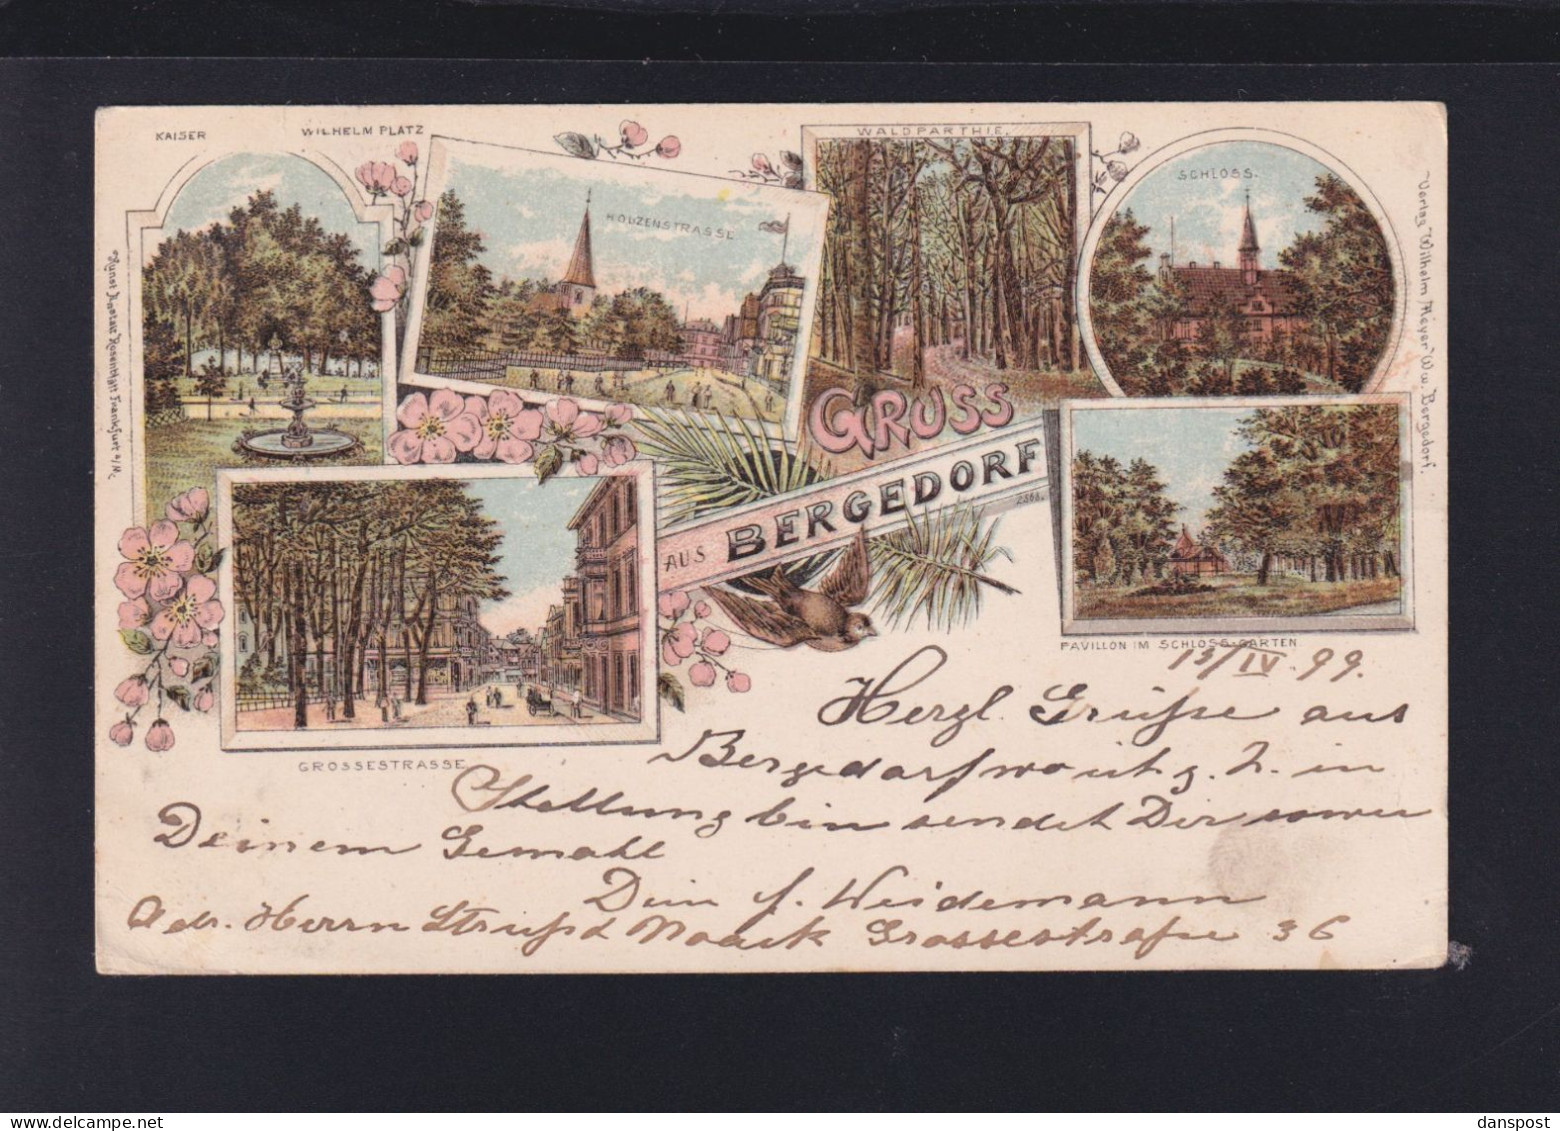 KAISER WILHELM PLATZ
HOLZENSTRASSE
WALDPARTHIE.
SCHLOSS.
Kunst Anstalt Rosenblatt Frankfurt a/M.
Verlag Wilhelm Meyer Ww. Bergedorf.
GRUSS
AUS BERGEDORF
2566.
PAVILLON IM SCHLOSS-GARTEN
GROSSESTRASSE
13/IV. 99.
Herzl. Grüße aus
Bergedorf z. Z. in
Stellung bin sendet Dir sowie
Deinem Gemahl
Dein f. Weidemann
Adr. Herrn Noack Grossestraße 36
danspost